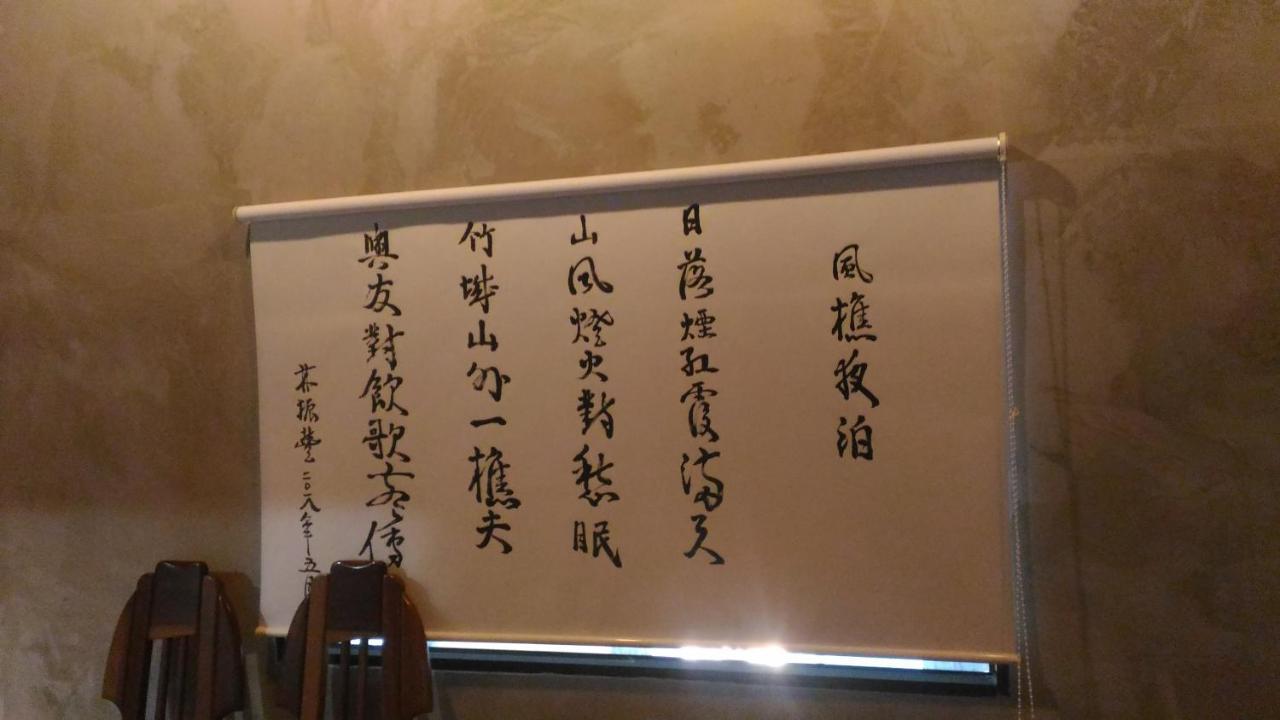 風樵夜泊
日落煙紅霞滿天
山風燈火對愁眠
竹城山外一樵夫
與友對飲歌客傳
林振豐二〇一八年五月